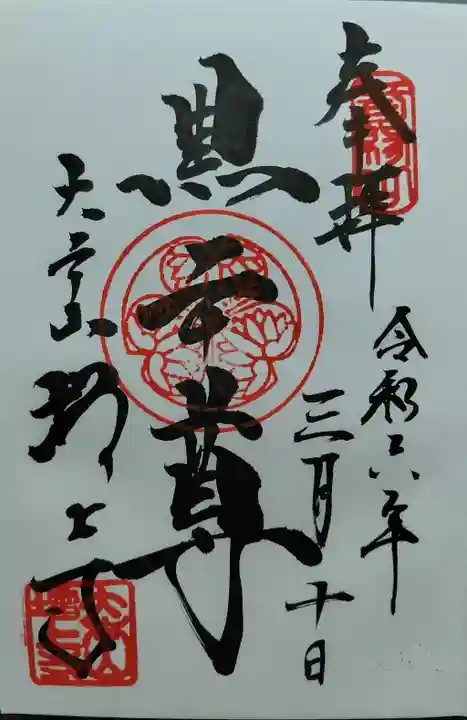 奉拝
令和六年
三月十日
黒本尊
大本山 増上寺